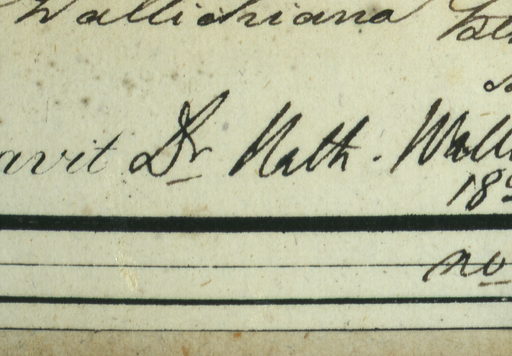 Wallichiana
avit Dr Nath. Wall
18
no